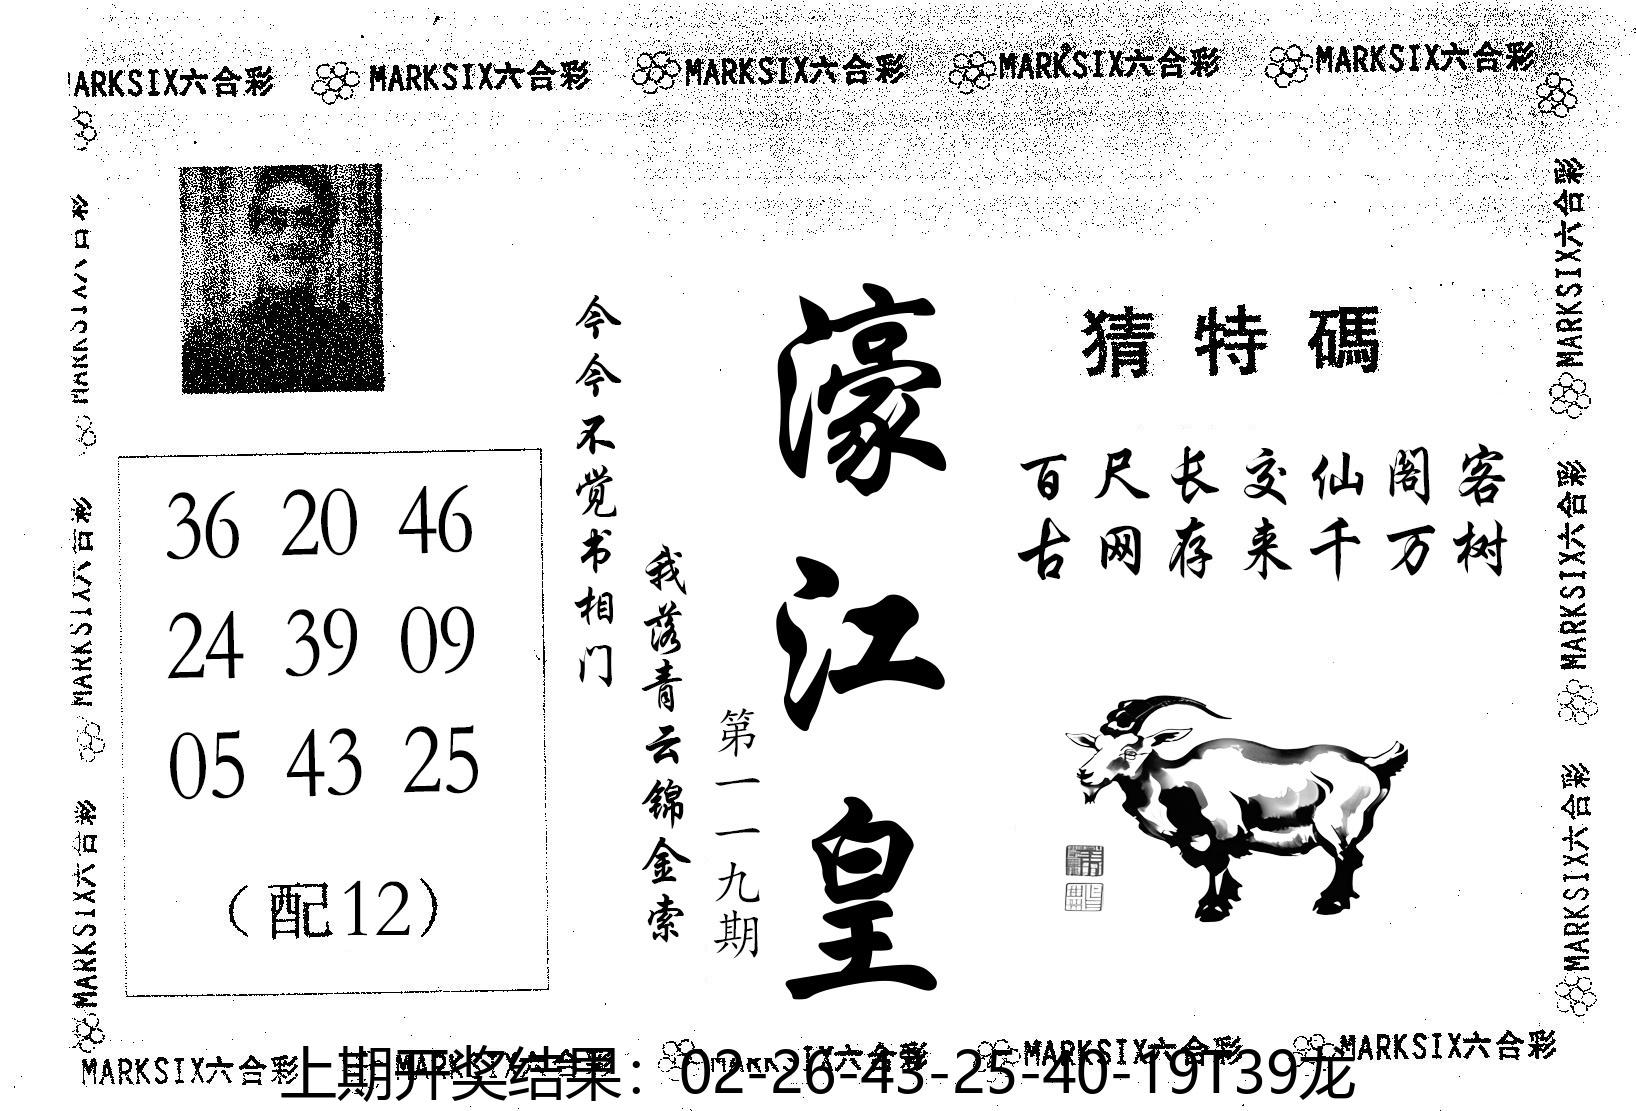 MARKSIX六合彩 MARKSIX六合彩 MARKSIX六合彩 MARKSIX六合彩 MARKSIX六合彩
猜特碼
百尺长交仙阁客
古网存来千万树
濠江皇
第一一九期
今今不觉书相门
我落青云锦金索
36 20 46
24 39 09
05 43 25
（配12）
MARKSIX六合彩
MARKSIX六合彩
MARKSIX六合彩
MARKSIX六合彩
MARKSIX六合彩
MARKSIX六合彩
MARKSIX六合彩 MARKSIX六合彩 MARKSIX六合彩 MARKSIX六合彩 MARKSIX六合彩
上期开奖结果：02-26-43-25-40-19T39龙